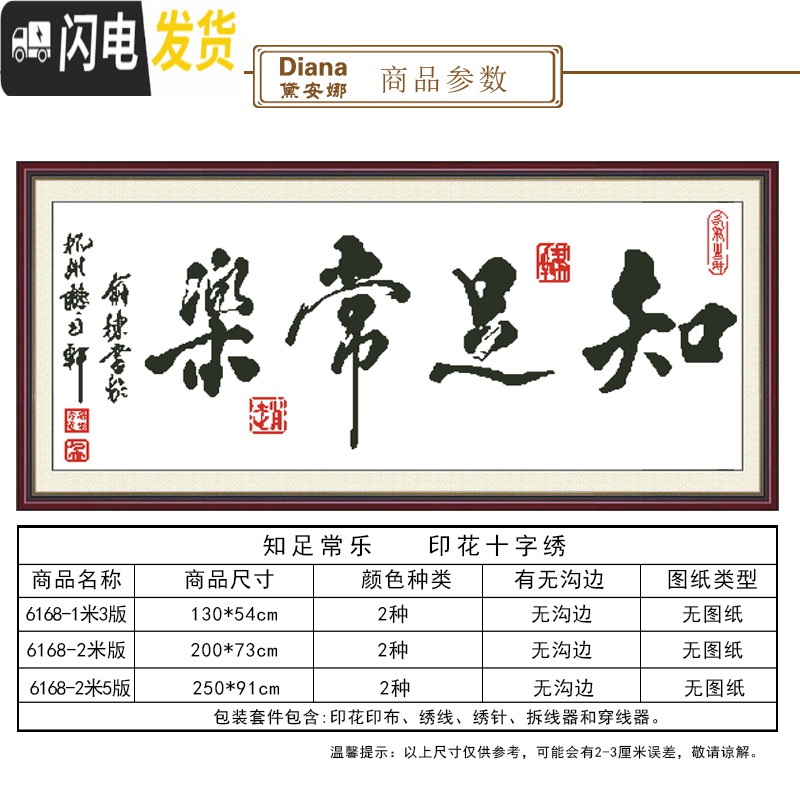 闪电发货
Diana
黛安娜
商品参数
知足常樂
知足常乐 印花十字绣
商品名称 商品尺寸 颜色种类 有无沟边 图纸类型
6168-1米3版 130*54cm 2种 无沟边 无图纸
6168-2米版 200*73cm 2种 无沟边 无图纸
6168-2米5版 250*91cm 2种 无沟边 无图纸
包装套件包含:印花印布、绣线、绣针、拆线器和穿线器。
温馨提示：以上尺寸仅供参考，可能会有2-3厘米误差，敬请谅解。